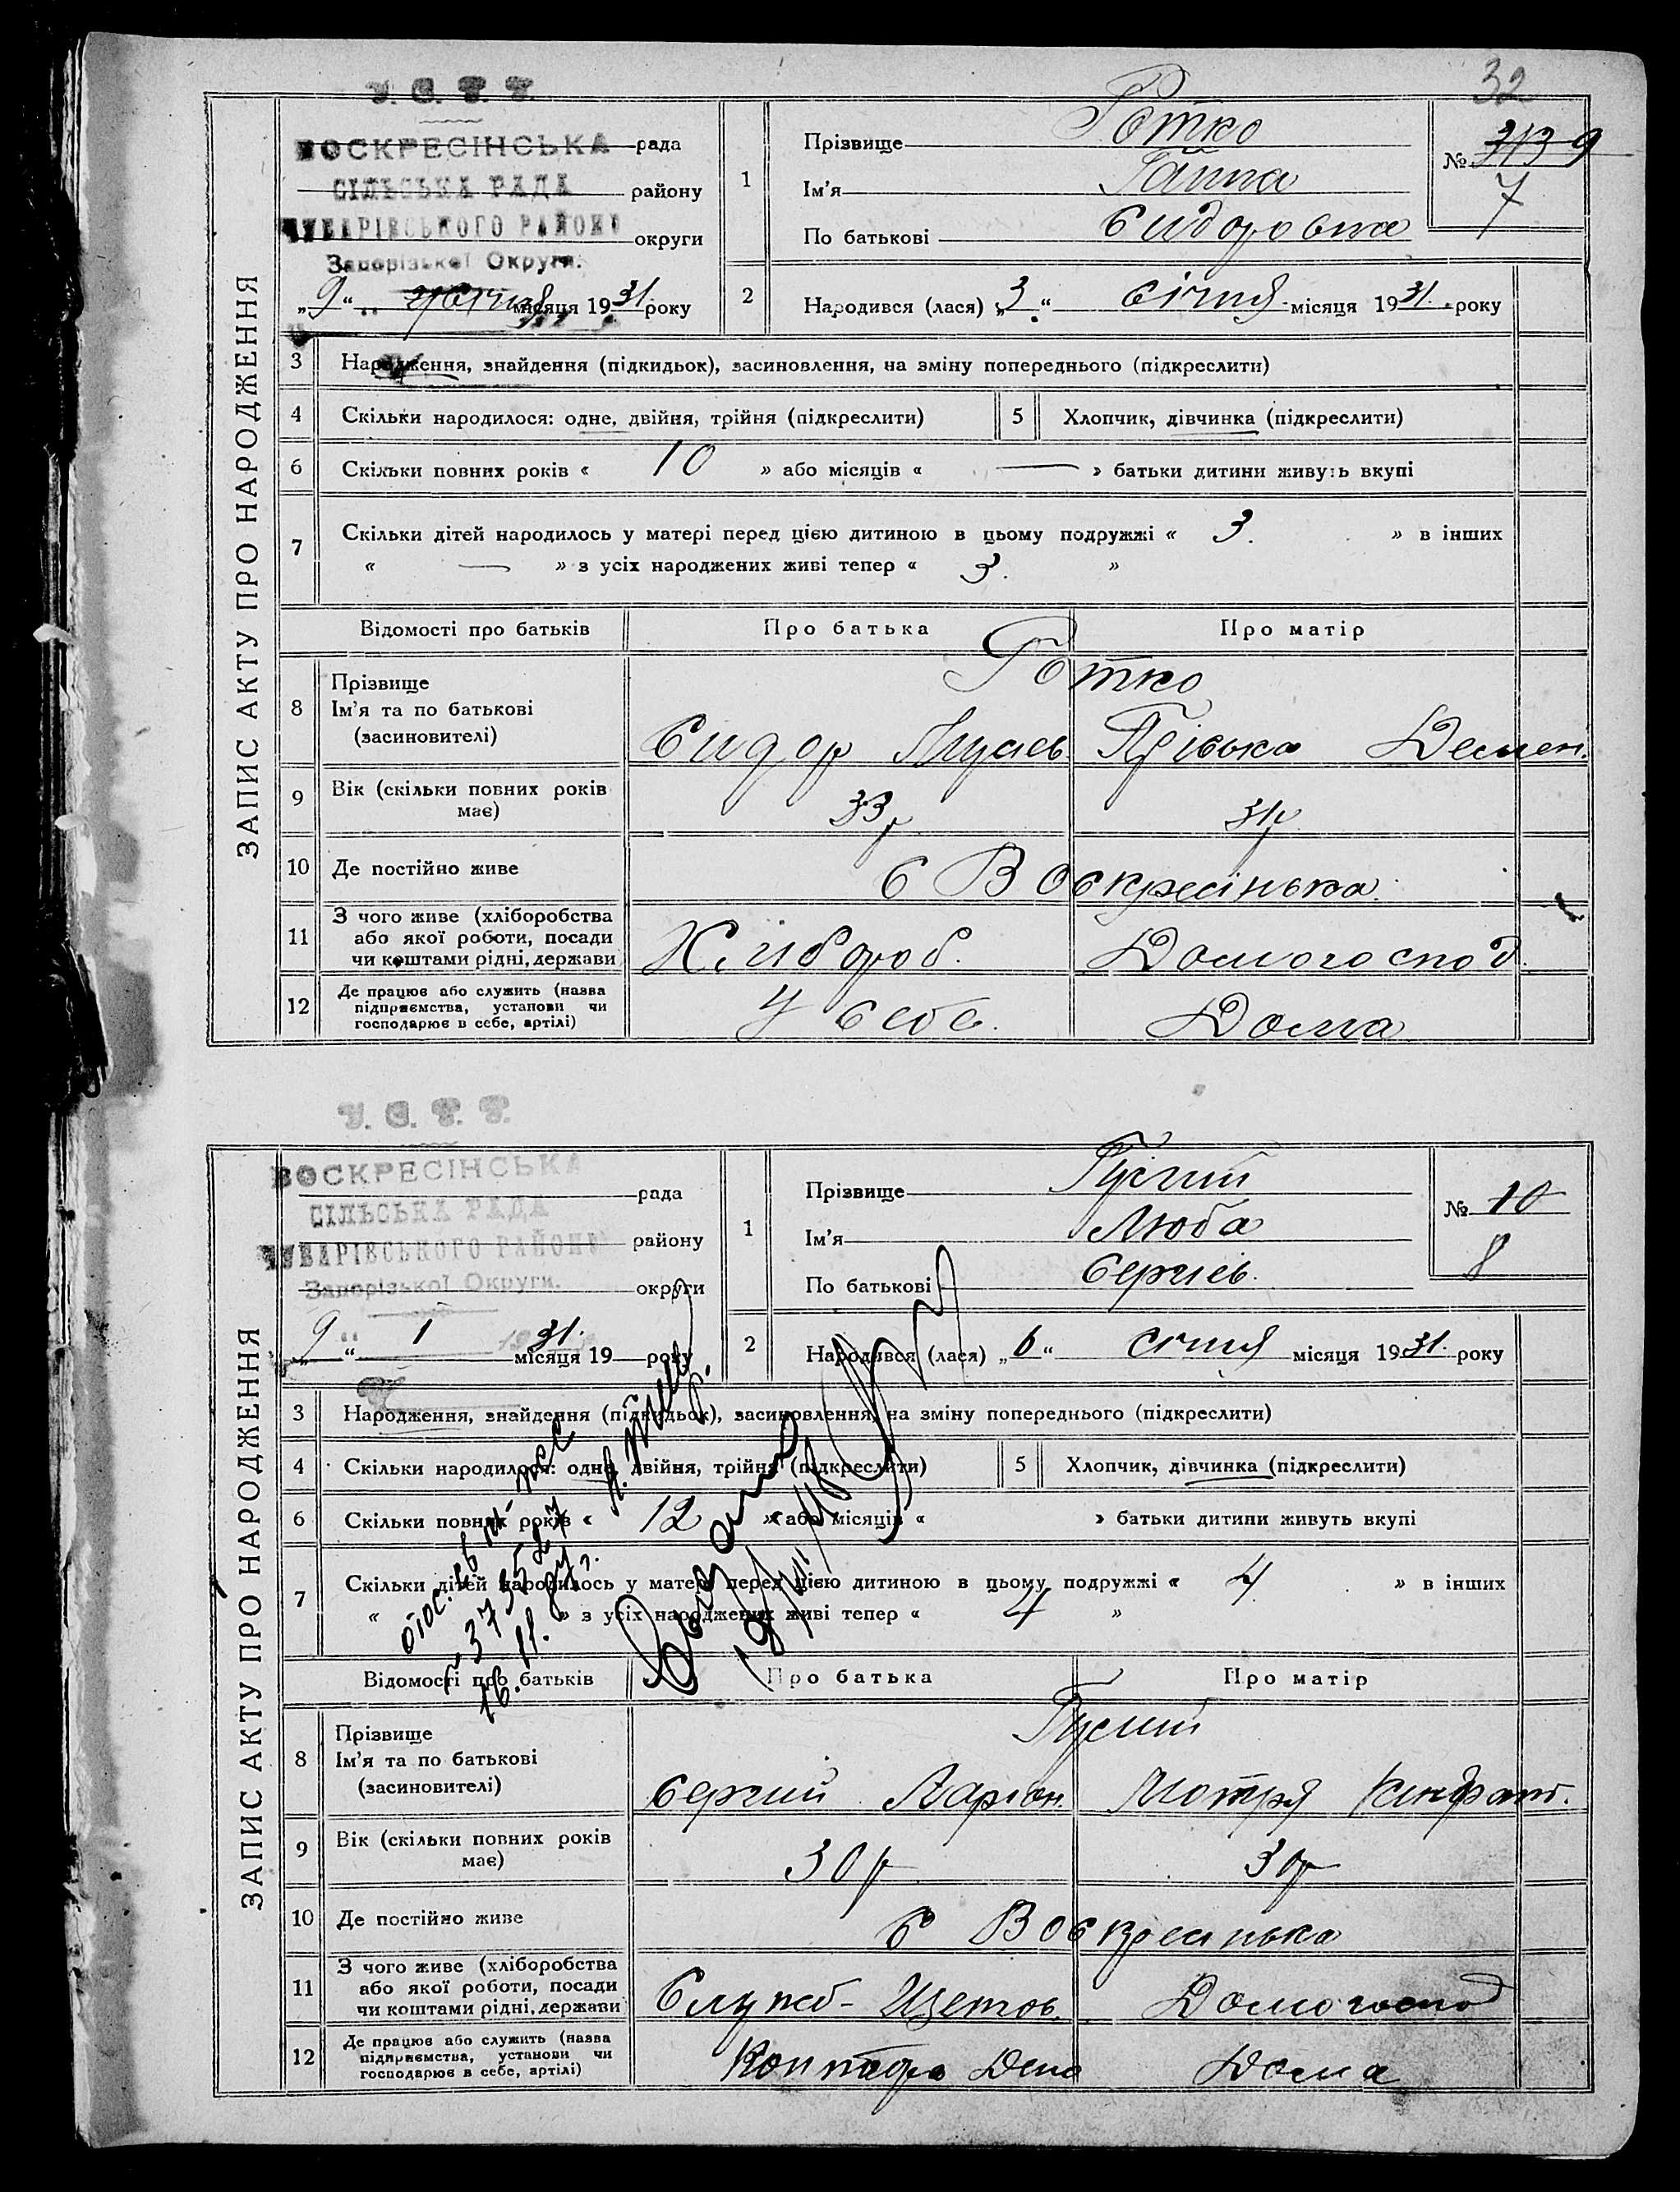 32
У. С. Т. Т.
ЗАПИС АКТУ ПРО НАРОДЖЕННЯ
ВОСКРЕСІНСЬКА рада
СІЛЬСЬКА РАДА району
ЧУБАРІВСЬКОГО РАЙОНУ округи
Запорізької Округи.
„9“ місяця 1931 року
1
Прізвище Готко
Ім’я Ганна
По батькові Сидоровна
№ 313 9
7
2 Народився (лася) „3“ січня місяця 1931. року
3 Народження, знайдення (підкидьок), засиновлення, на зміну попереднього (підкреслити)
4 Скільки народилося: одне, двійня, трійня (підкреслити) 5 Хлопчик, дівчинка (підкреслити)
6 Скільки повних років « 10 » або місяців « — » батьки дитини живуть вкупі
7 Скільки дітей народилось у матері перед цією дитиною в цьому подружжі « 3. » в інших
« — » з усіх народжених живі тепер « 3. »
Відомості про батьків Про батька Про матір
8 Прізвище
Ім’я та по батькові
(засиновителі)
Готко
Сидор Пріська Демен.
9 Вік (скільки повних років
має)
33р 31р
10 Де постійно живе с Воскресінька.
11 З чого живе (хліборобства
або якої роботи, посади
чи коштами рідні, держави
Хлібороб. Домогоспод.
12 Де працює або служить (назва
підприємства, установи чи
господарює в себе, артілі)
У себе. Дома
У. С. Т. Т.
ЗАПИС АКТУ ПРО НАРОДЖЕННЯ
ВОСКРЕСІНСЬКА рада
СІЛЬСЬКА РАДА району
ЧУБАРІВСЬКОГО РАЙОНУ округи
Запорізької Округи.
„9“ 1 місяця 19 31. року
1
Прізвище
Ім’я Люба
По батькові Сергіев.
№ 10
8
2 Народився (лася) „6“ січня місяця 1931. року
3 Народження, знайдення (підкидьок), засиновлення, на зміну попереднього (підкреслити)
4 Скільки народилося: одне, двійня, трійня (підкреслити) 5 Хлопчик, дівчинка (підкреслити)
6 Скільки повних років « 12 » або місяців « » батьки дитини живуть вкупі
7 Скільки дітей народилось у матері перед цією дитиною в цьому подружжі « 4. » в інших
« » з усіх народжених живі тепер « 4 »
Відомості про батьків Про батька Про матір
8 Прізвище
Ім’я та по батькові
(засиновителі)
Сергий Ларіон. Мотря Кіндрат.
9 Вік (скільки повних років
має)
30р 30р
10 Де постійно живе с Воскресінька
11 З чого живе (хліборобства
або якої роботи, посади
чи коштами рідні, держави
Службо- Щетов. Домогоспод
12 Де працює або служить (назва
підприємства, установи чи
господарює в себе, артілі)
Контора Депо Дома